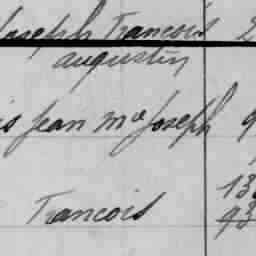 Joseph Francois 2
augustin
Jean Me Joseph 9
13
Francois 93